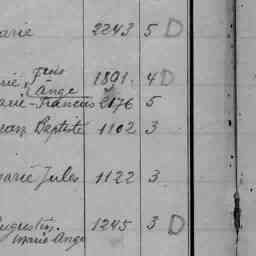 arie 2243 5 D
rie, 1891. 4 D
Ange
arie-Francois 2176 5
ean Baptiste 1102 3
marie Jules 1122 3
Augustin. 1245 3 D
Marie Ange